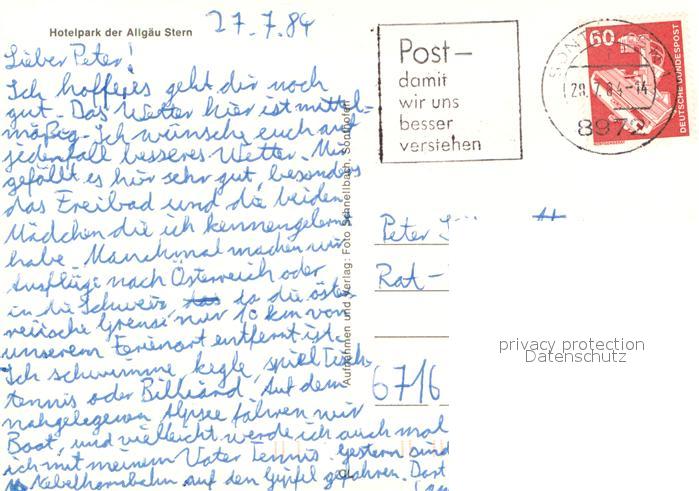 27.7.84
Hotelpark der Allgäu Stern
Lieber Peter!
Ich hoffe, es geht dir noch
gut. Das Wetter hier ist mittel-
mäßig. Ich wünsche euch auf
jedenfall besseres Wetter. Mir
gefällt es hier sehr gut, besonders
das Freibad und die beiden
Mädchen die ich kennengelernt
habe. Manchmal machen wir
Ausflüge nach Österreich oder
in die Schweiz, da die öster-
reiische Grense nur 10 km von
unserem Ferienort entfernt ist.
Ich schwimme, kegle, spiel Tisch-
tennis oder Billiard. Auf dem
nahgelegenen Alpsee fahren wir
Boot, und vielleicht werde ich auch mal
mit meinem Vater Tennis. Gestern sind
Nebelhornbahn auf den Gipfel gefahren. Dort
Aufnahmen und Verlag: Foto Schnellbach, Sonthofen
Post-
damit
wir uns
besser
verstehen
SONT
28.7.84-14
8972
60
DEUTSCHE BUNDESPOST
Peter
Rat-
6716
privacy protection
Datenschutz